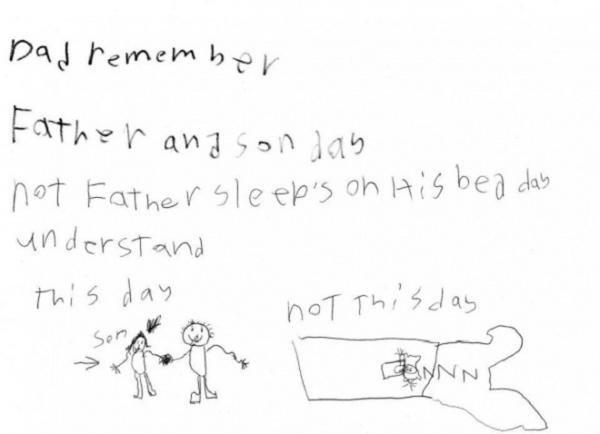 Dad remember
Father and son day
not Father sleep's on His bed day
understand
this day
not This day
Son
NNNN